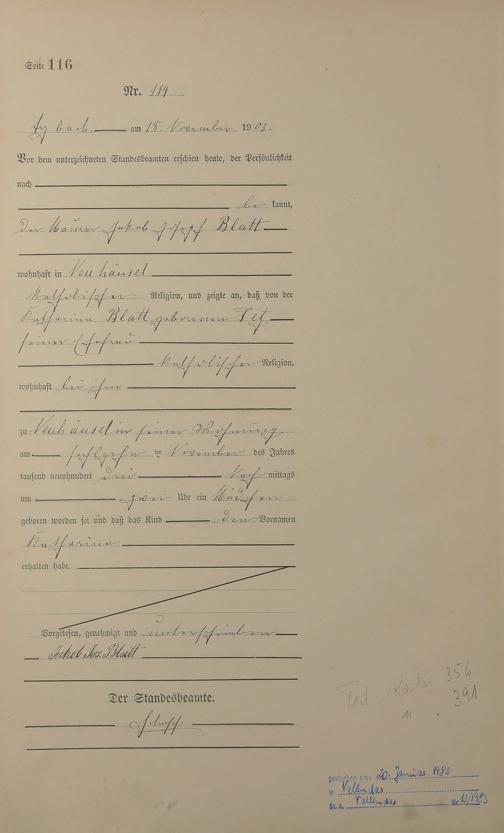 Seite 116
Nr. 114
Eybach. am 18. November 1903.
Vor dem unterzeichneten Standesbeamten erschien heute, der Persönlichkeit
nach
be kannt,
der Maurer Jakob Josef Blatt
wohnhaft in Neuhäusel
katholischer Religion, und zeigte an, daß von der
Katharina Blatt geborenen
seiner Ehefrau
katholischer Religion,
wohnhaft bei ihm
zu Neuhäusel in seiner Wohnung
am sechzehn ten November des Jahres
tausend neunhundert drei Nach mittags
um zwei Uhr ein Mädchen
geboren worden sei und daß das Kind den Vornamen
Katharina
erhalten habe.
Vorgelesen, genehmigt und unterschrieben
Jakob Jos. Blatt
Der Standesbeamte.
356
391
gestorben am: 20. Januar 1983
in Vallendar
St.A. Vallendar Nr. 13/1983